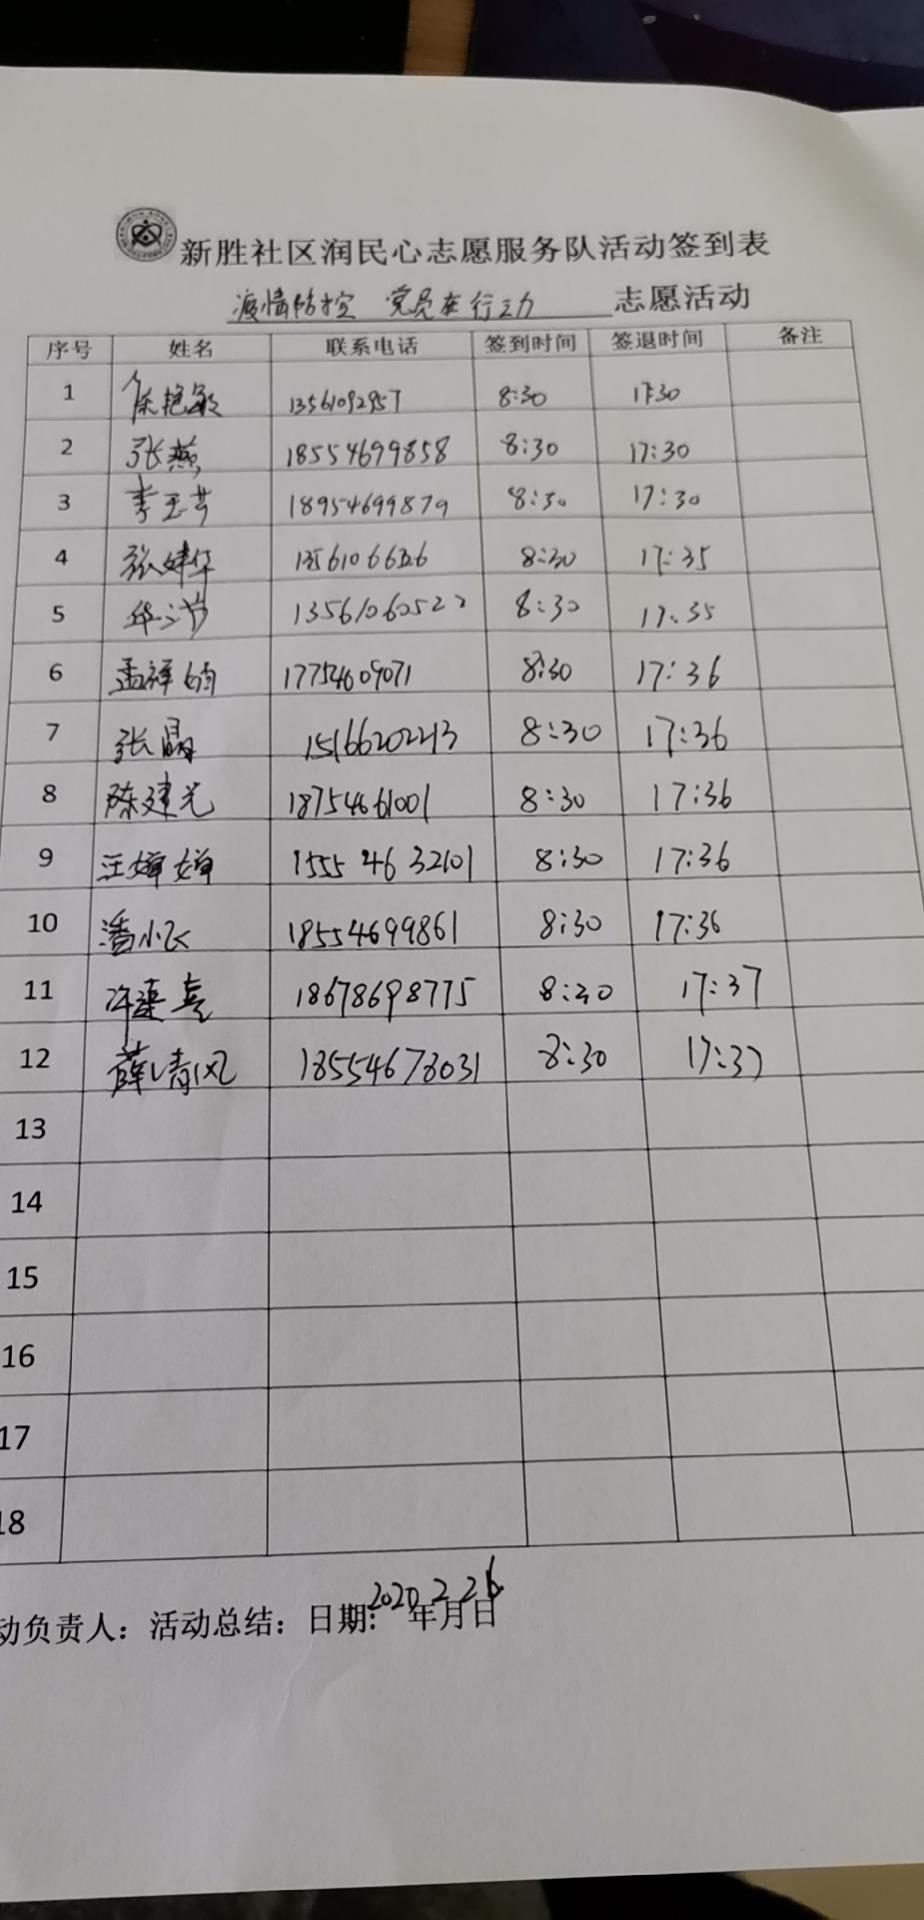 新胜社区润民心志愿服务队活动签到表
疫情防控 党员在行动 志愿活动
序号 姓名 联系电话 签到时间 签退时间 备注
1 徐艳敏 13561092957 8:30 17:30
2 张燕 18554699858 8:30 17:30
3 李玉芳 18954699879 8:30 17:30
4 张婕华 8:30 17:35
5 13561060522 8:30 17:35
6 孟祥娟 17754609071 8:30 17:36
7 张晶 15166202213 8:30 17:36
8 陈建光 18754661001 8:30 17:36
9 王婵婵 15554632101 8:30 17:36
10 潘小飞 18554699861 8:30 17:36
11 18678698775 8:30 17:37
12 薛清风 18554678031 8:30 17:37
13
14
15
16
17
18
动负责人：活动总结：日期：2020年2月26日